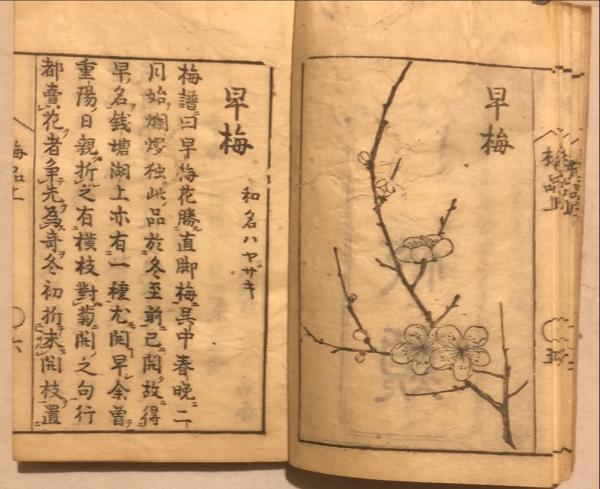 早梅
早梅
和名ハヤザキ
梅譜曰早梅花勝直脚梅呉中春晩二
月始爛熳独此品於冬至前已開故得
早名錢塘湖上亦有一種尤開早余曽
重陽日親折之有横枝對菊開之句行
都賣花者争先為奇冬初折未開枝置
梅品上
六